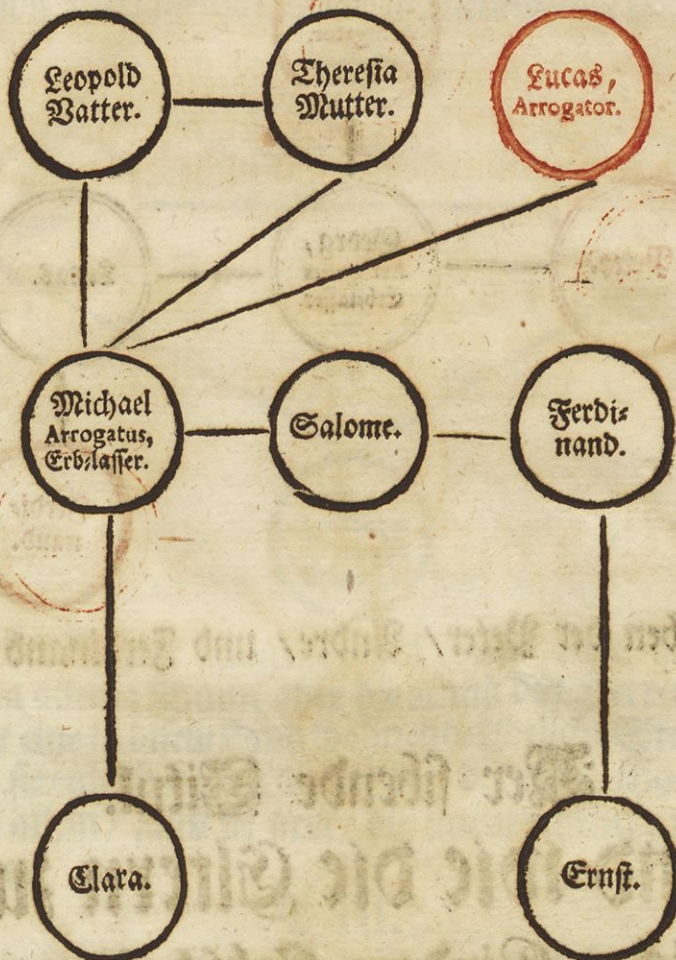 Leopold
Vatter.
Theresia
Mutter.
Lucas,
Arrogator.
Michael
Arrogatus,
Erb-lasser.
Salome.
Ferdi-
nand.
Clara.
Ernst.